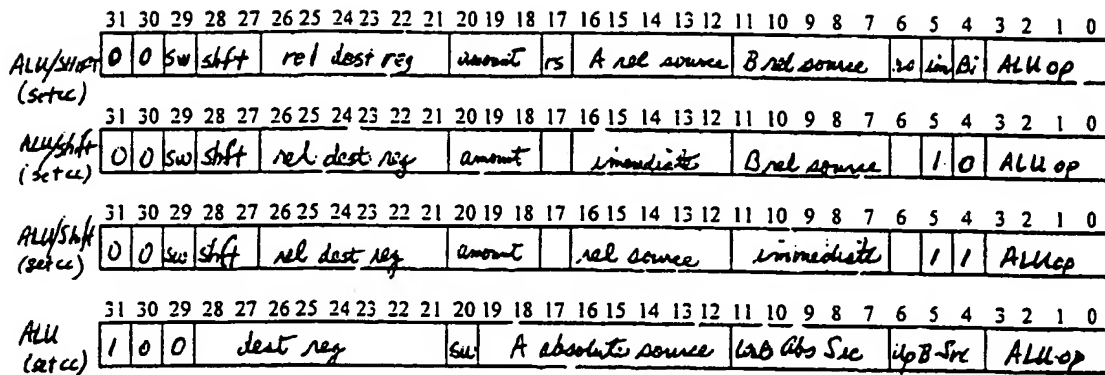 31 30 29 28 27 26 25 24 23 22 21 20 19 18 17 16 15 14 13 12 11 10 9 8 7 6 5 4 3 2 1 0
ALU/SHIFT 0 0 sw shft rel dest reg amount rs A rel source B rel source rs im Bi ALU op
(setcc)
31 30 29 28 27 26 25 24 23 22 21 20 19 18 17 16 15 14 13 12 11 10 9 8 7 6 5 4 3 2 1 0
ALU/shft 0 0 sw shft rel dest reg amount immediate B rel source 1 0 ALU op
(setcc)
31 30 29 28 27 26 25 24 23 22 21 20 19 18 17 16 15 14 13 12 11 10 9 8 7 6 5 4 3 2 1 0
ALU/Shft 0 0 sw shft rel dest reg amount rel source immediate 1 1 ALUop
(setcc)
31 30 29 28 27 26 25 24 23 22 21 20 19 18 17 16 15 14 13 12 11 10 9 8 7 6 5 4 3 2 1 0
ALU 1 0 0 dest reg sw A absolute source B Abs Src B-Src ALU-op
(setcc)